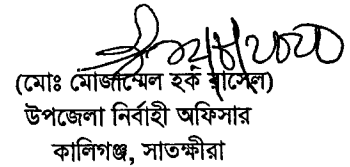 (মোঃ মোজাম্মেল হক রাসেল)
উপজেলা নির্বাহী অফিসার
কালিগঞ্জ, সাতক্ষীরা